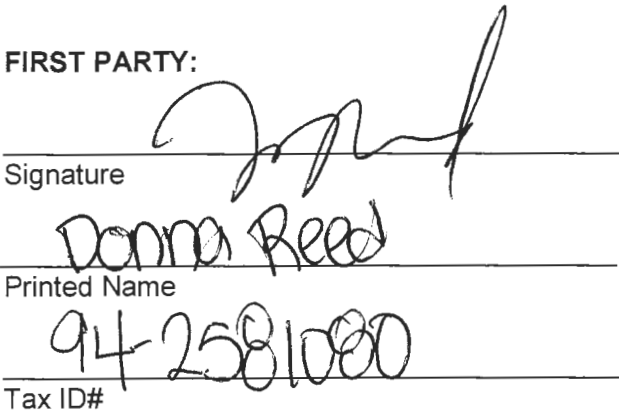 FIRST PARTY:
Signature
Donna Reed
Printed Name
94-2581080
Tax ID#